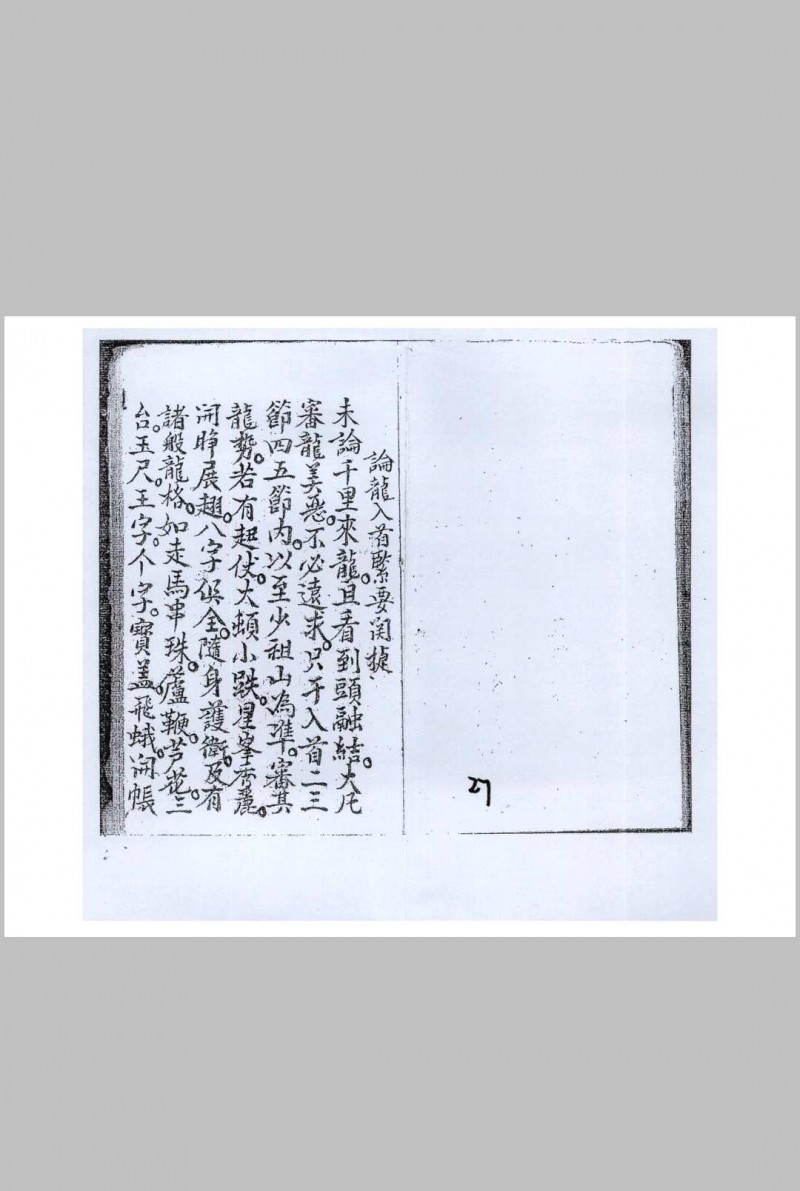 論龍入首緊要関
未論千里來龍。且看到頭融結。大凡
審龍美惡。不必遠求。只于入首二三
節四五節內。以至少祖山為準。審其
龍勢。若有起伏。大頓小跌。星峯秀麗。
開睁展翅。八字俱全。隨身護衛。及有
諸般龍格。如走馬串珠。蘆鞭。芦花三
台。玉尺。王字。个字。寶盖。飛蛾。開帳
27